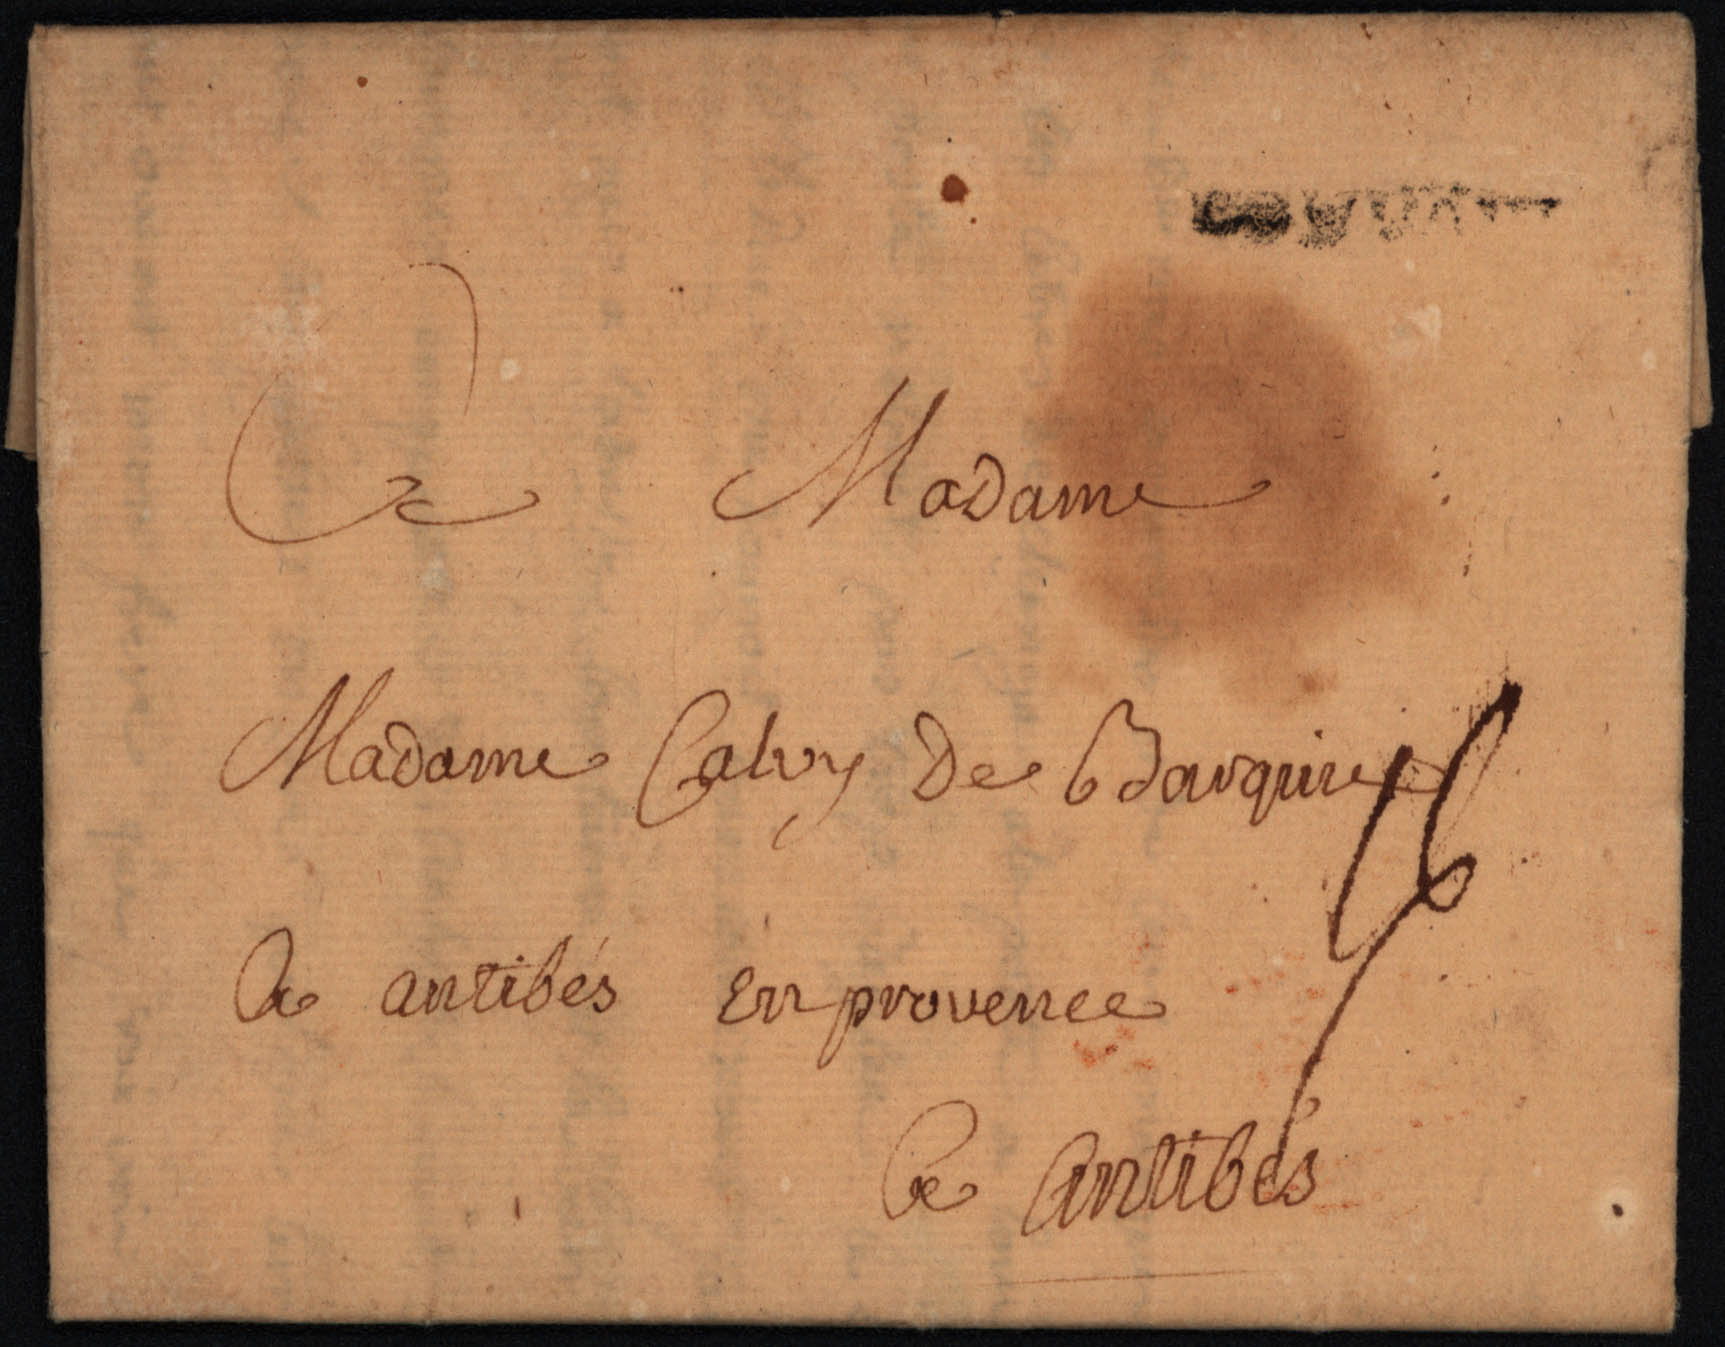 A Madame
Madame Calvy De Barquin
a antibés en provence
a antibés